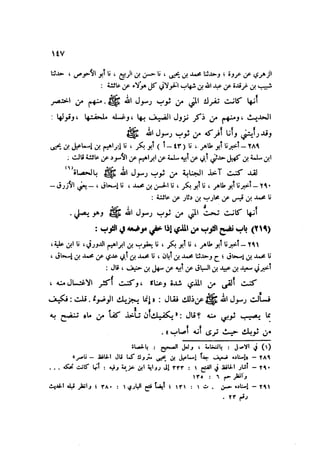 ١٤٧
الزهري عن عروة ؛ وحدثنا محمد بن يحيى ، نا حسن بن الربيع ، نا أبو الأحوص ، حدثنا
شبيب بن غرقدة عن عبد الله بن شهاب الخولاني كل هؤلاء عن عائشة :
أنها كانت تفرك المني من ثوب رسول الله ﷺ . منهم من اختصر
الحديث ، ومنهم من ذكر نزول الضيف بها ، وغسله ملحفتها ، وقولها :
وقد رأيتني وأنا أفركه من ثوب رسول الله ﷺ
٢٨٩ - أخبرنا أبو طاهر ، نا ( ٤٣ - أ ) أبو بكر ، نا إبراهيم بن إسماعيل بن يحيى
ابن سلمة بن كهيل حدثني أبي عن أبيه عن سلمة عن إبراهيم عن الأسود عن عائشة قالت :
لقد كنت آخذ الجنابة من ثوب رسول الله ﷺ بالحصاة(١)
٢٩٠ - أخبرنا أبو طاهر ، نا أبو بكر ، نا الحسن بن محمد ، نا إسحاق ، - يعني الأزرق -
نا محمد بن قيس عن محارب بن دثار عن عائشة :
أنها كانت تحتّ المني من ثوب رسول الله ﷺ وهو يصلي .
(٢١٩) باب نضح الثوب من المذي إذا خفي موضعه في الثوب :
٢٩١ - أخبرنا أبو طاهر ، نا أبو بكر ، نا يعقوب بن إبراهيم الدورقي ، نا ابن علية ،
نا محمد بن إسحاق ح وحدثنا محمد بن أبان ، نا محمد بن أبي عدي عن محمد بن إسحاق ،
أخبرني سعيد بن عبيد بن السباق عن أبيه عن سهل بن حنيف ، قال :
كنت ألقى من المذي شدة وعناء ، وكنت أكثر الاغتسال منه ،
فسألت رسول الله ﷺ عن ذلك فقال : «إنما يجزيك الوضوء . قلت : فكيف
بما يصيب ثوبي منه ؟ قال : «يكفيك أن تأخذ كفاً من ماء تنضح به
من ثوبك حيث ترى أنه أصاب» .
(١) في الاصل : بالنخامة ، ولعل الصحيح : بالحصاة
٢٨٩ - «إسناده ضعيف جداً إسماعيل بن يحيى متروك كما قال الحافظ - ناصر»
٢٩٠ - أشار الحافظ في الفتح ١ : ٣٣٣ إلى رواية ابن خزيمة وفيه : أنها كانت تحكه ...
وانظر حم ٦ : ١٣٥
٢٩١ - إسناده حسن . ت ١ : ١٣١ ؛ أيضاً فتح الباري ١ : ٣٨٠ ؛ وانظر قبله الحديث
رقم ٢٣ .